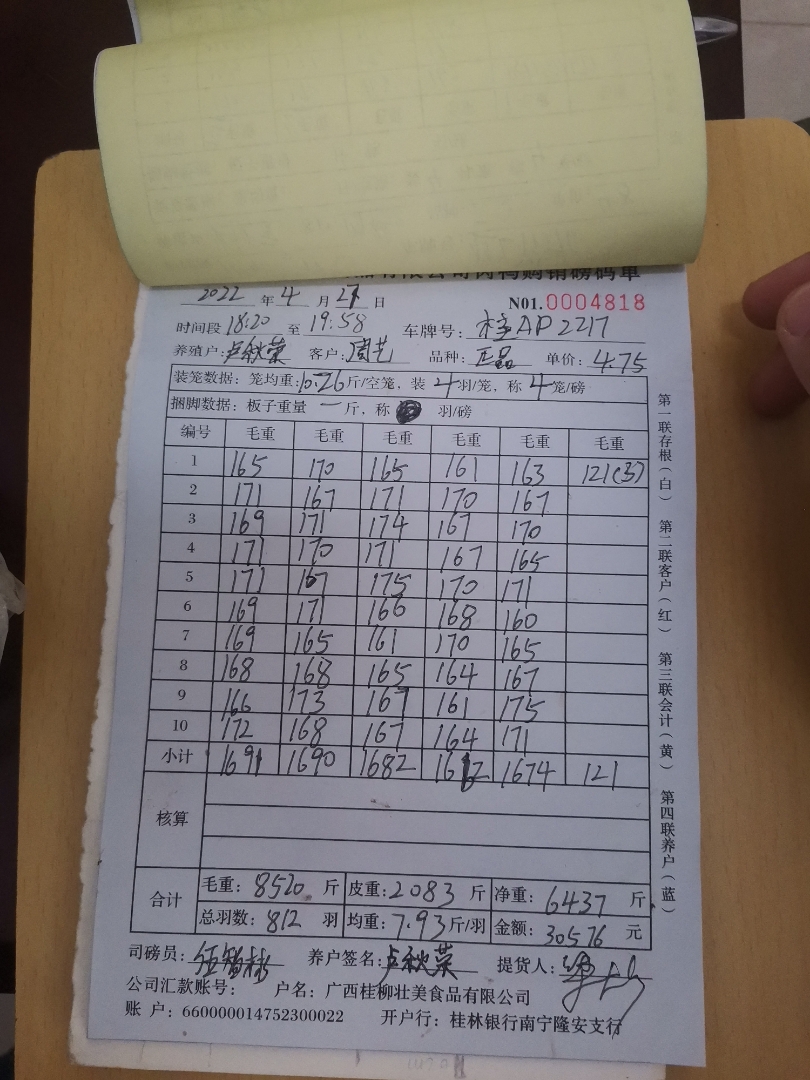 2022 年 4 月 27 日 N01.0004818
时间段 18:20 至 19:58 车牌号: 桂AP2217
养殖户: 卢秋荣 客户: 周艺 品种: 正品 单价: 4.75
装笼数据: 笼均重: 10.26 斤/空笼, 装 4 羽/笼, 称 4 笼/磅
捆脚数据: 板子重量 一 斤, 称 羽/磅
编号 毛重 毛重 毛重 毛重 毛重 毛重
1 165 170 165 161 163 121(3)
2 171 167 171 170 167
3 169 171 174 167 170
4 171 170 171 167 165
5 171 167 175 170 171
6 169 171 166 168 160
7 169 165 161 170 165
8 168 168 165 164 167
9 166 173 167 161 175
10 172 168 167 164 171
小计 1691 1690 1682 1662 1674 121
核算
合计 毛重: 8520 斤 皮重: 2083 斤 净重: 6437 斤
总羽数: 812 羽 均重: 7.93 斤/羽 金额: 30576 元
司磅员: 养户签名: 卢秋荣 提货人:
公司汇款账号: 户名: 广西桂柳壮美食品有限公司
账 户: 660000014752300022 开户行: 桂林银行南宁隆安支行
第一联存根(白) 第二联客户(红) 第三联会计(黄) 第四联养户(蓝)